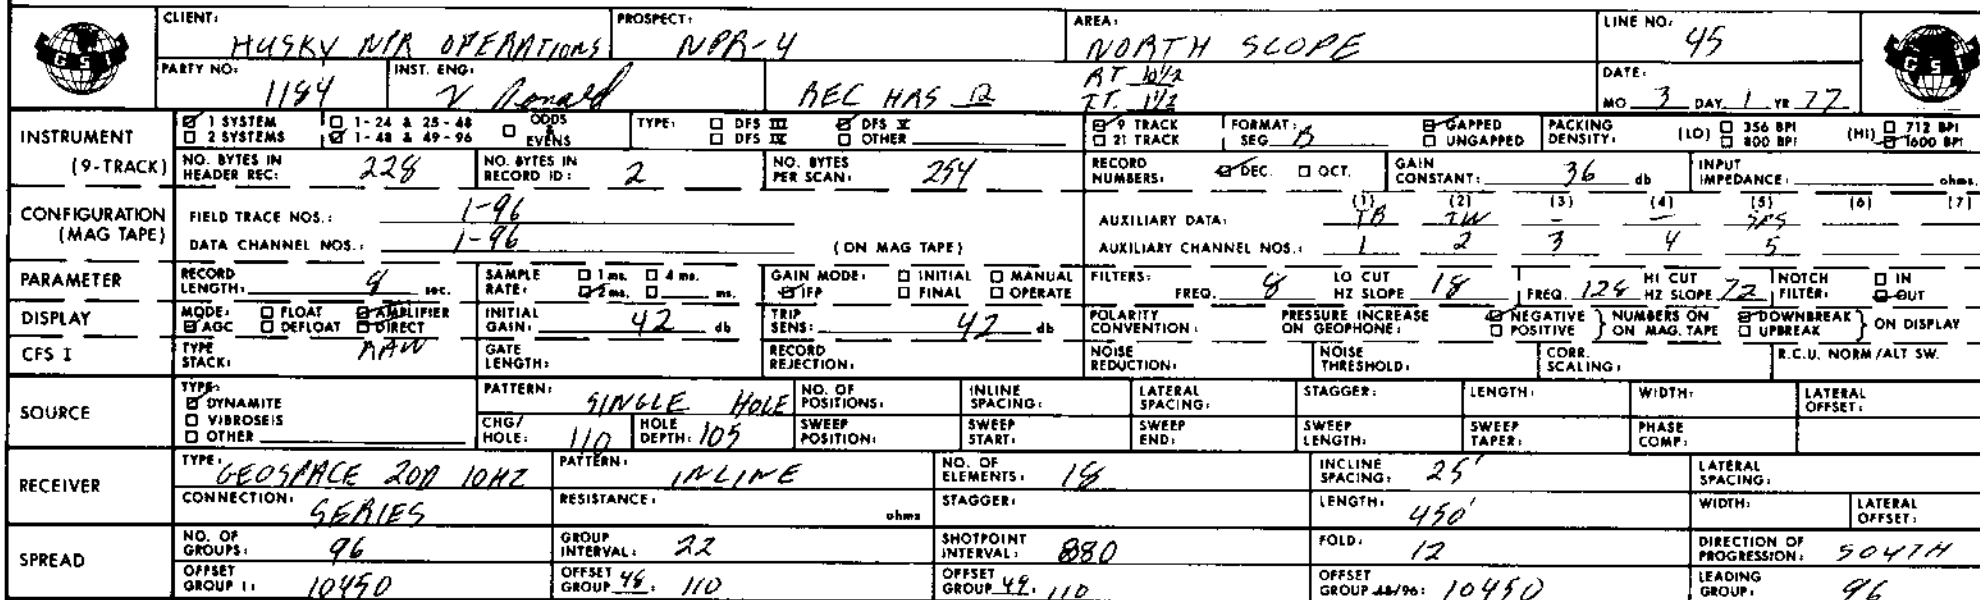 CLIENT: HUSKY NPR OPERATIONS PROSPECT: NPR-4 AREA: NORTH SLOPE LINE NO: 45
GSI GSI
PARTY NO: 1184 INST. ENG: V Ronald REC HAS 12 RT 10 1/2 DATE:
TT. 1 1/2 MO 3 DAY 1 YR 77
INSTRUMENT 1 SYSTEM 1-24 & 25-48 ODDS & EVENS TYPE: DFS III DFS V 9 TRACK FORMAT: GAPPED PACKING (LO) 356 BPI (HI) 712 BPI
2 SYSTEMS 1-48 & 49-96 DFS IV OTHER 21 TRACK SEG B UNGAPPED DENSITY: 800 BPI 1600 BPI
(9-TRACK) NO. BYTES IN HEADER REC: 228 NO. BYTES IN RECORD ID: 2 NO. BYTES PER SCAN: 254 RECORD NUMBERS: DEC. OCT. GAIN CONSTANT: 36 db INPUT IMPEDANCE: ohms.
CONFIGURATION FIELD TRACE NOS.: 1-96 AUXILIARY DATA: (1) TB (2) TW (3) - (4) - (5) (6) (7)
(MAG TAPE) DATA CHANNEL NOS.: 1-96 (ON MAG TAPE) AUXILIARY CHANNEL NOS.: 1 2 3 4 5
PARAMETER RECORD LENGTH: 8 sec. SAMPLE RATE: 1 ms. 4 ms. 2 ms. ms. GAIN MODE: INITIAL MANUAL IFP FINAL OPERATE FILTERS: FREQ. 8 LO CUT HZ SLOPE 18 FREQ. 128 HI CUT HZ SLOPE 72 NOTCH FILTER: IN OUT
DISPLAY MODE: FLOAT AMPLIFIER AGC DEFLOAT DIRECT INITIAL GAIN: 42 db TRIP SENS: 42 db POLARITY CONVENTION: PRESSURE INCREASE ON GEOPHONE: NEGATIVE POSITIVE } NUMBERS ON ON MAG. TAPE DOWNBREAK UPBREAK } ON DISPLAY
CFS I TYPE STACK: RAW GATE LENGTH: RECORD REJECTION: NOISE REDUCTION: NOISE THRESHOLD: CORR. SCALING: R.C.U. NORM/ALT SW.
SOURCE TYPE: DYNAMITE VIBROSEIS OTHER PATTERN: SINGLE HOLE NO. OF POSITIONS: INLINE SPACING: LATERAL SPACING: STAGGER: LENGTH: WIDTH: LATERAL OFFSET:
CHG/HOLE: 110 HOLE DEPTH: 105 SWEEP POSITION: SWEEP START: SWEEP END: SWEEP LENGTH: SWEEP TAPER: PHASE COMP:
RECEIVER TYPE: GEOSPACE 20D 10HZ PATTERN: INLINE NO. OF ELEMENTS: 18 INCLINE SPACING: 25' LATERAL SPACING:
CONNECTION: SERIES RESISTANCE: ohms STAGGER: LENGTH: 450' WIDTH: LATERAL OFFSET:
SPREAD NO. OF GROUPS: 96 GROUP INTERVAL: 22 SHOTPOINT INTERVAL: 880 FOLD: 12 DIRECTION OF PROGRESSION: SOUTH
OFFSET GROUP 1: 10450 OFFSET GROUP 48: 110 OFFSET GROUP 49: 110 OFFSET GROUP 48/96: 10450 LEADING GROUP: 96